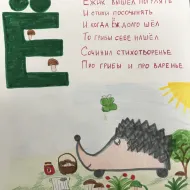 Ё
Ёжик вышел погулять
И стихи посочинять
И когда Ёж долго шёл
То грибы себе нашёл
Сочинил стихотворенье
Про грибы и про варенье.